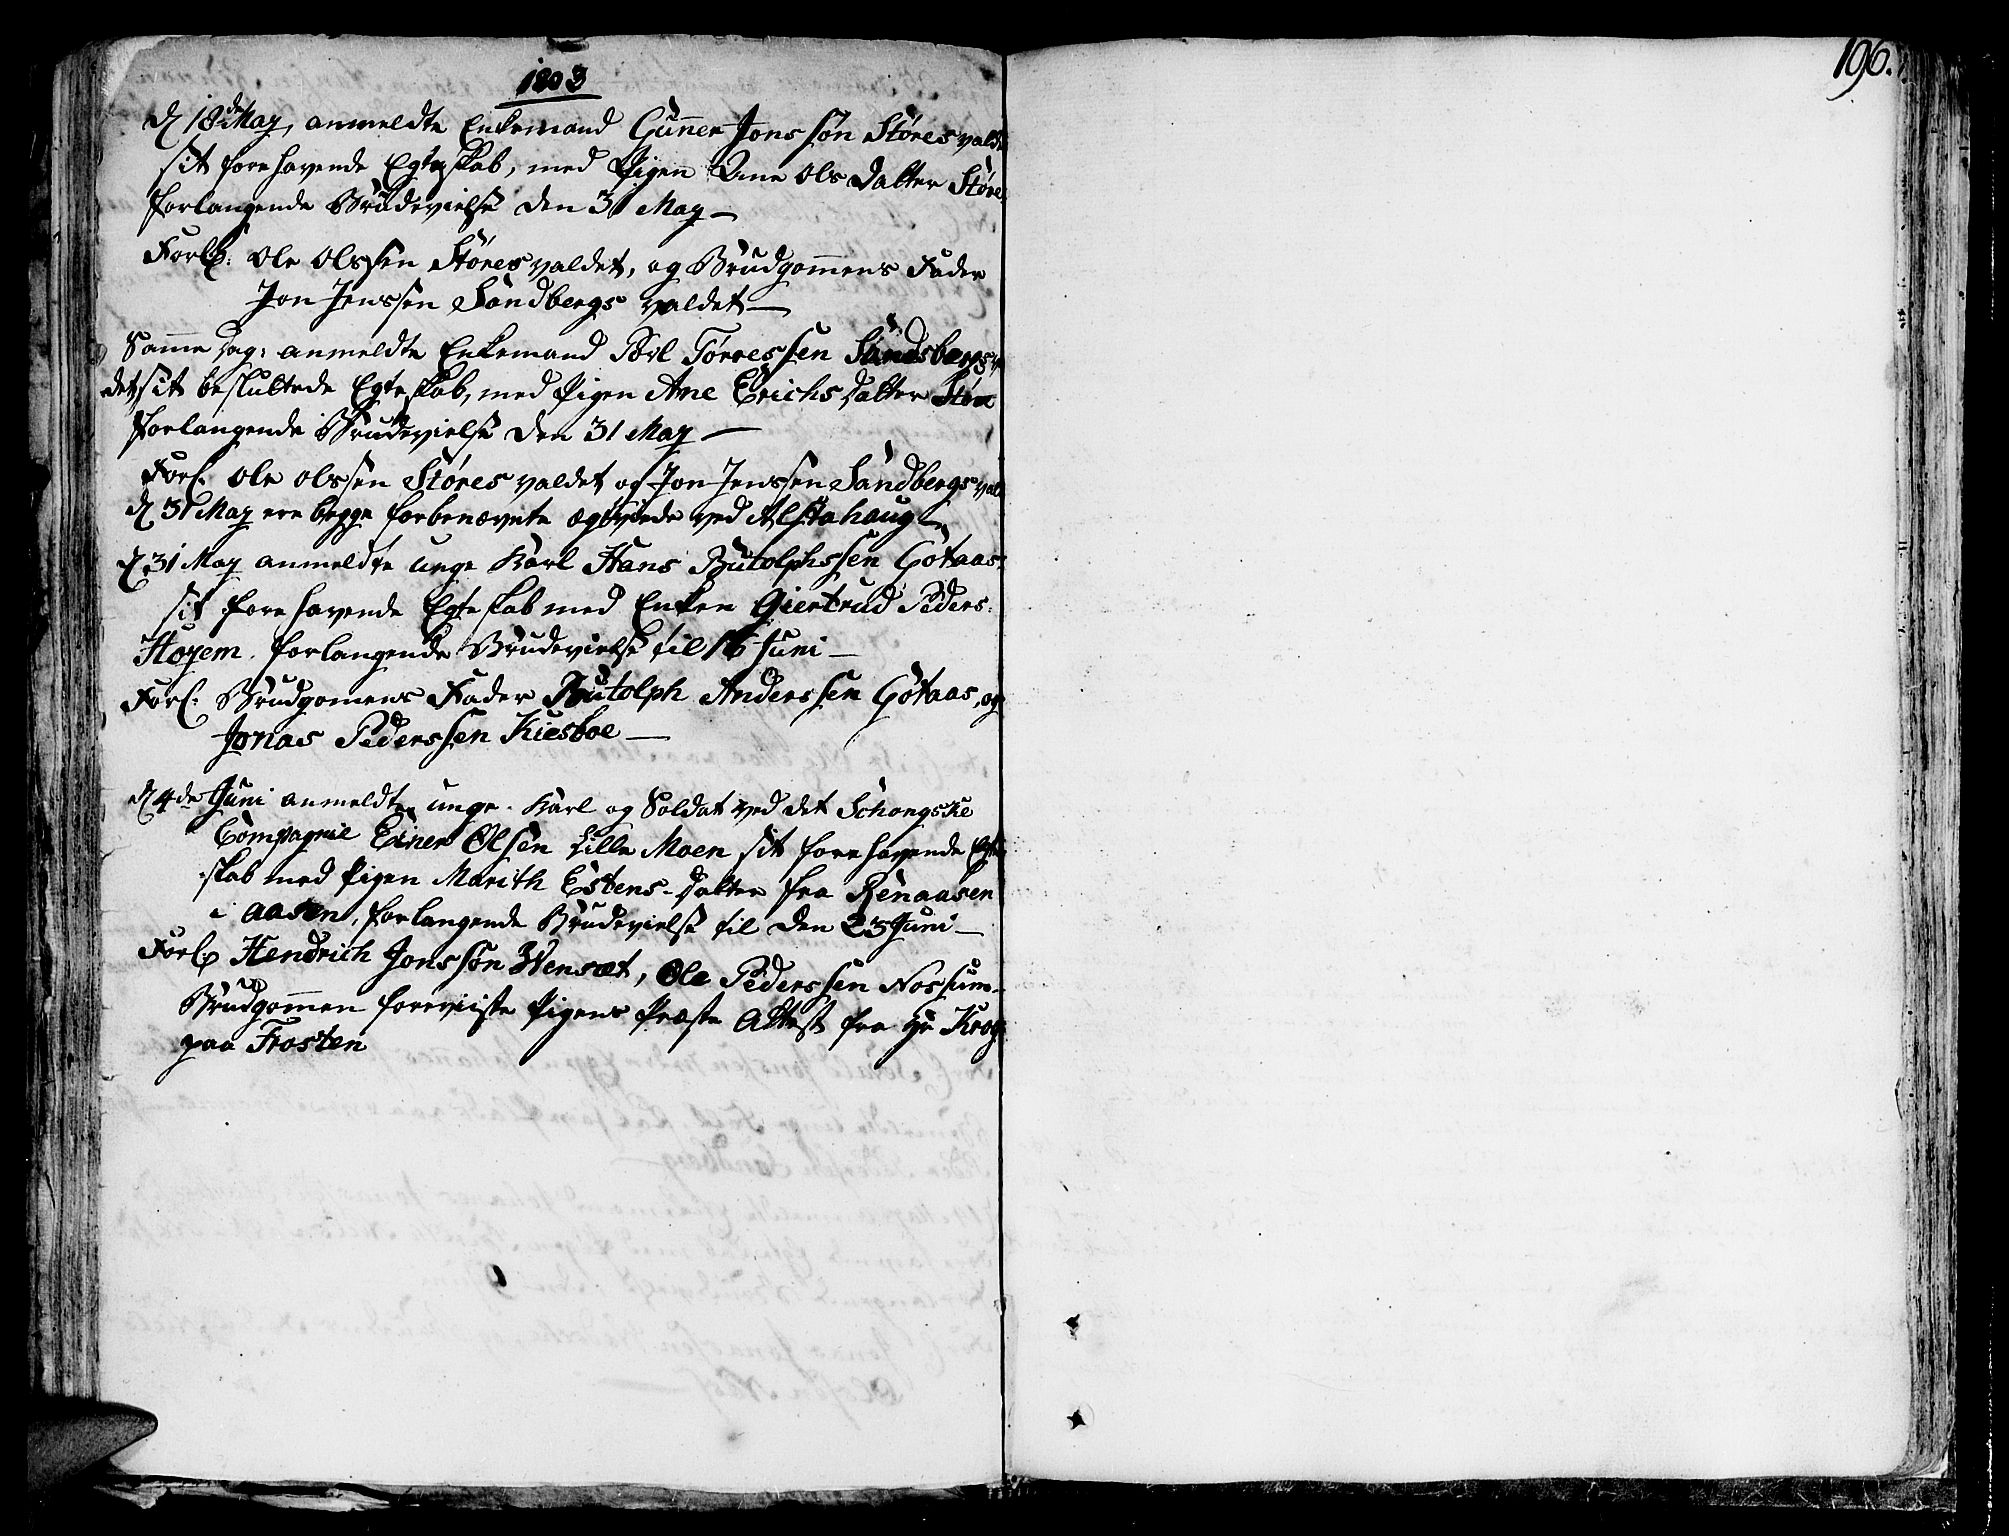 1803
d 18de May, anmeldte Enkemand Gunner Jonssøn Støres vald
sit forehavende Egteskab, med Pigen Ane Ols Datter Støre
forlangende Brudevielse den 31 May —
Forl: Ole Olssen Støres valdet, og Brudgommens Fader
Jon Jenssen Sandbergs valdet —
Samme Dag: anmeldte Enkemand Tørressen Sandsbergs
det, sit besluttede Egteskab, med Pigen Ane Erichs Datter Støre
forlangende Brudevielse den 31 May —
Forl. Ole Olssen Støres valdet og Jon Jenssen Sandbergs val
d 31 May ere begge forbenævnte ved Alstahaug
d. 31 May anmeldte unge Karl Hans Butolphssen Gotaas
sit forehavende Egteskab med Enken Giertrud Peders:
Hoyem. forlangende Brudevielse til 16 Juni —
Forl: Brudgomens Fader Butolph Anderssen Gotaas, og
Jonas Pederssen Kiesboe —
d 4de Juni anmeldte unge Karl og Soldat ved det Schongske
Compagnie Einer Olsen Lille Moen sit forehavende Egte
skab med Pigen Marith Estens-Datter fra Renaasen
i Aasen, forlangende Brudevielse til den 23 Juni —
Forl: Hendrich Jonssøn Wensæt, Ole Pederssen Nossum.
Brudgommen foreviiste Pigens Præste Attest fra Hr Krog
paa Frosten
196.